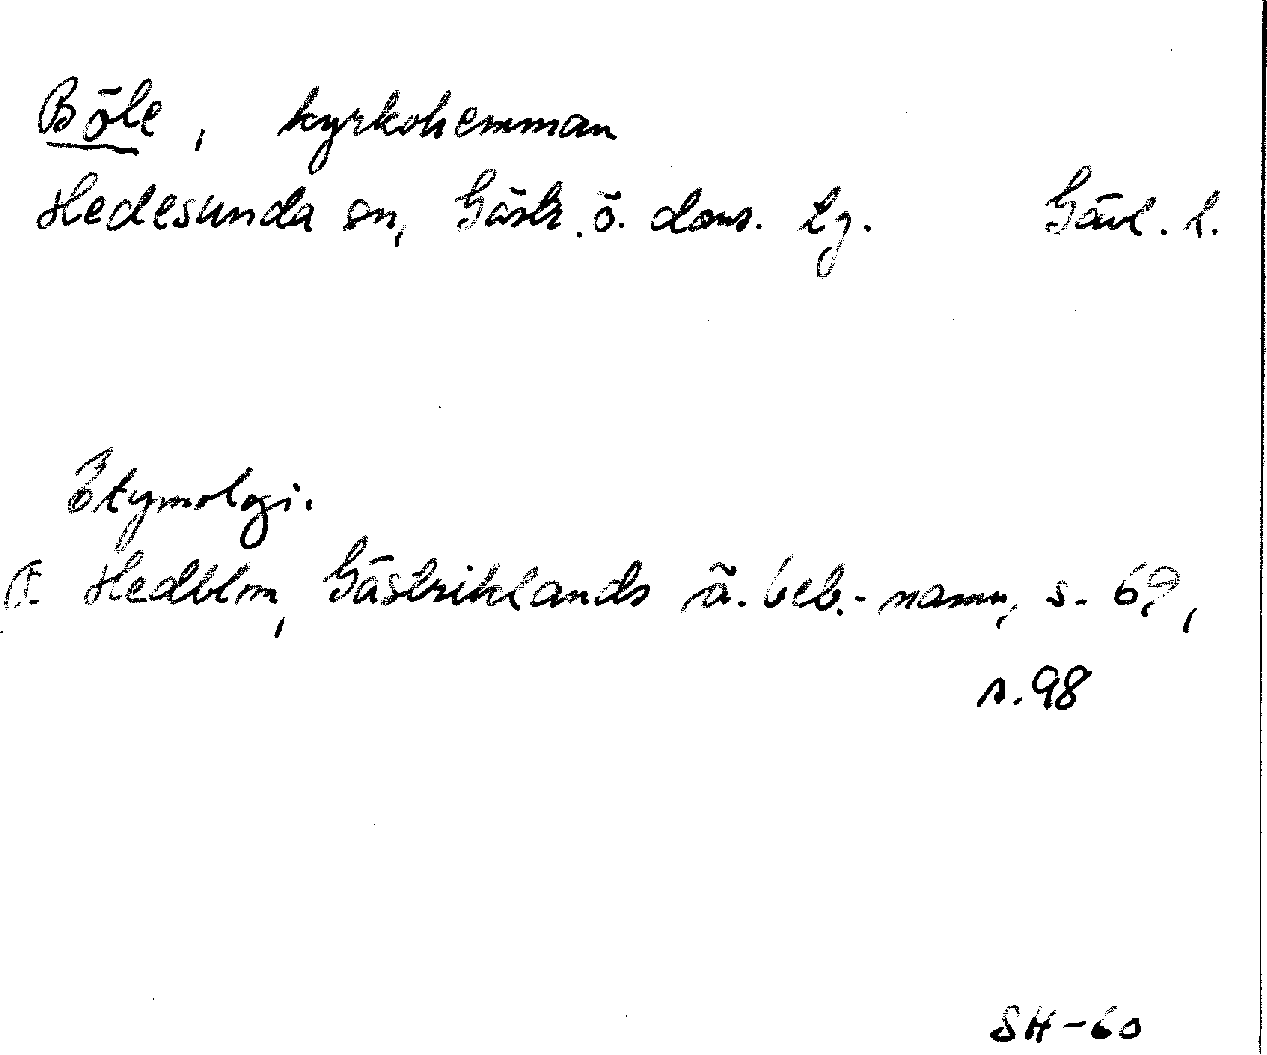 Böle, kyrkohemman
Hedesunda sn, Gästr. ö. doms. lg. Gävl. l.
Etymologi.
F. Hedblom, Gästriklands ä. beb.-namn, s. 69,
s. 98
SH-60